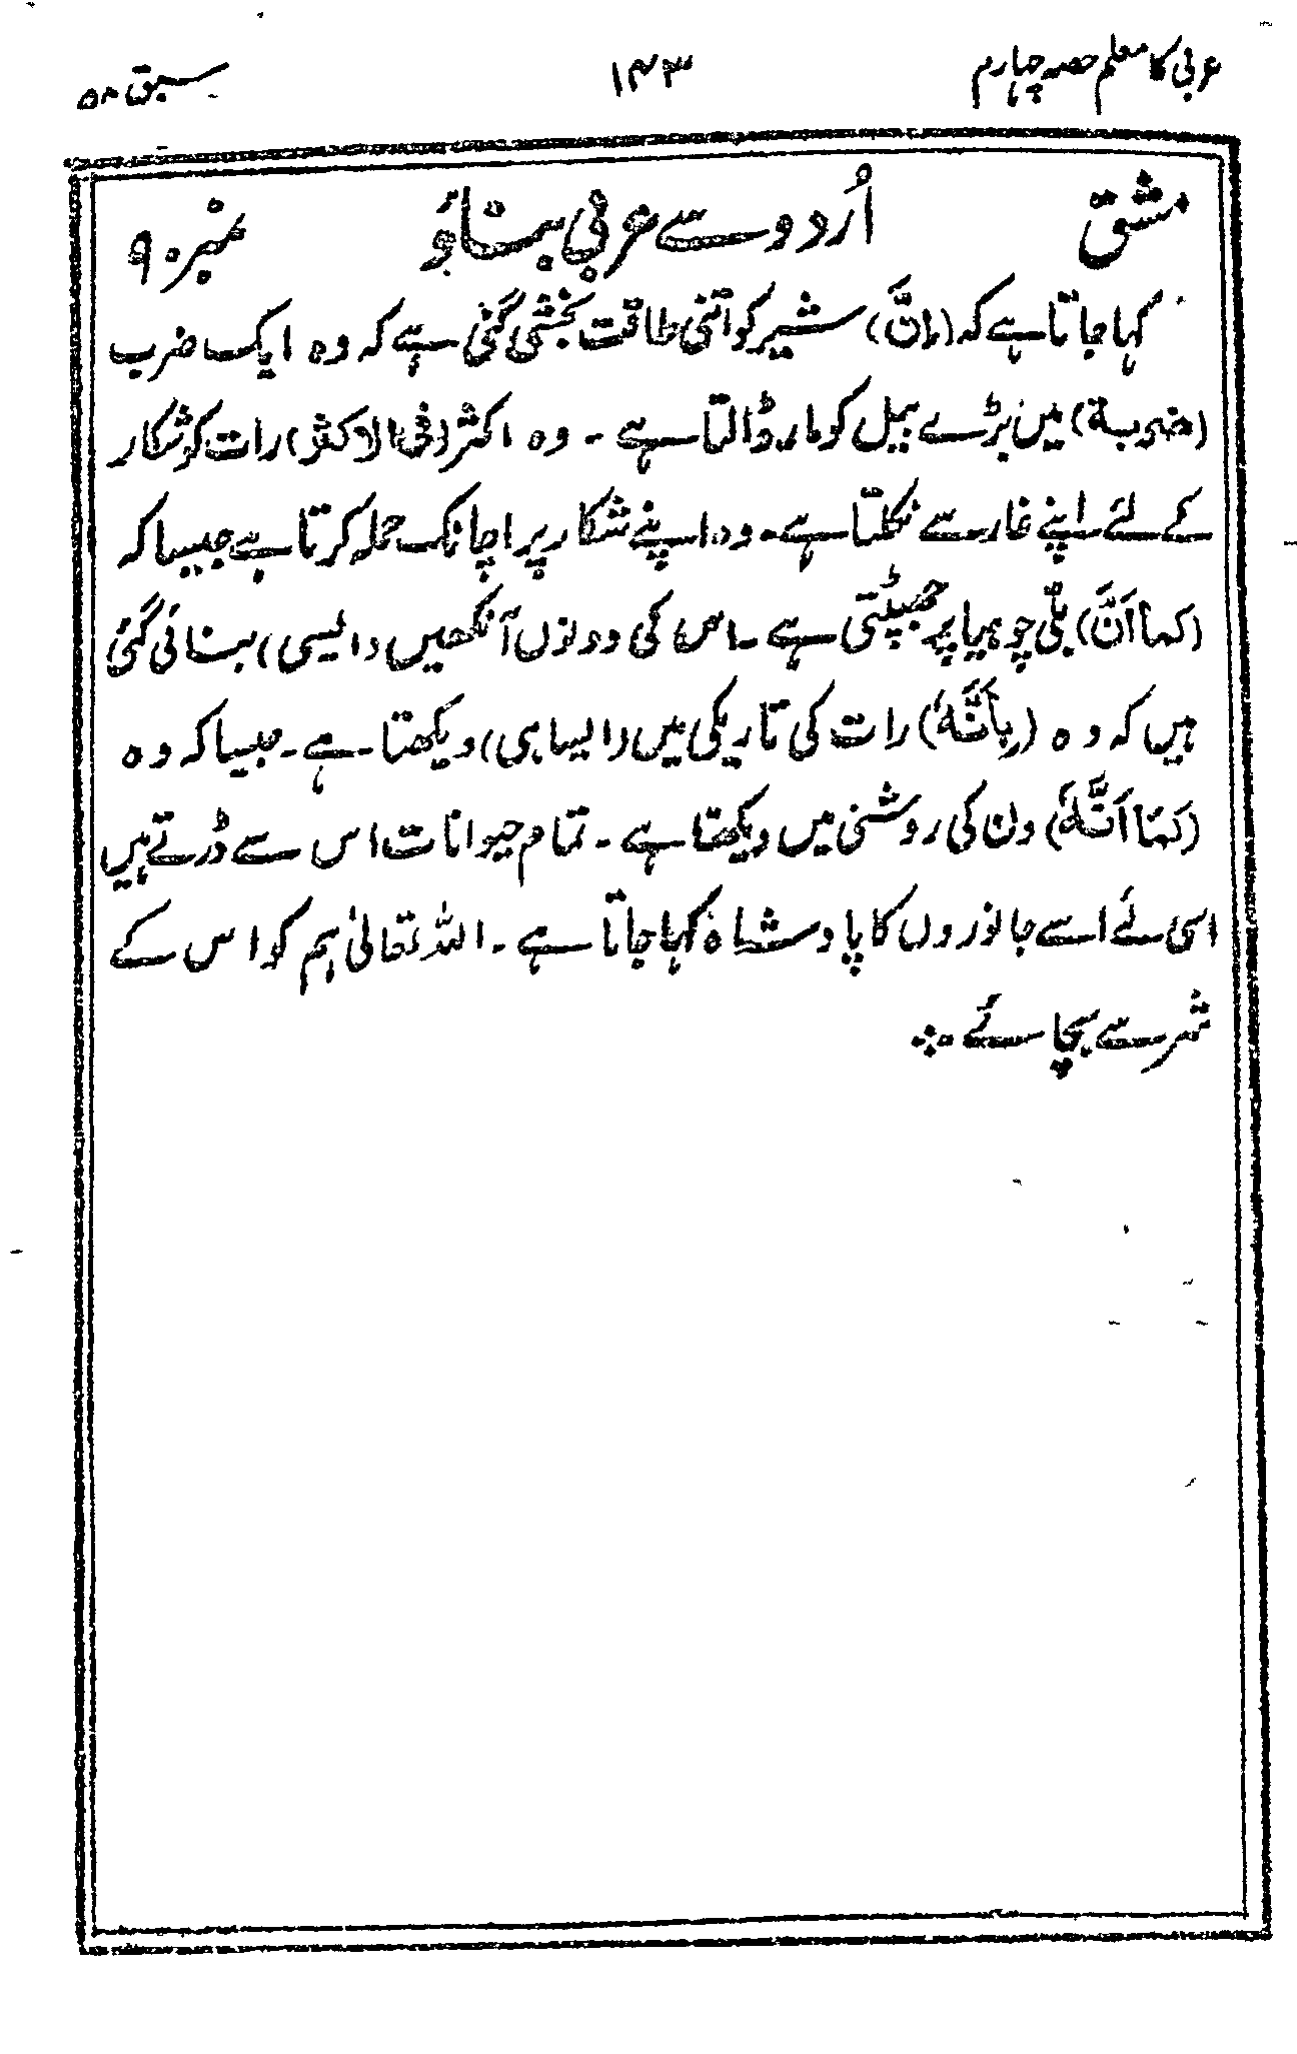 عربی کا معلم حصہ چہارم ۱۴۳ سبق ۵۸
مشق اُردو سے عربی بناؤ نمبر ۹۰
کہا جاتا ہے کہ (اِنَّ) شیر کو اتنی طاقت بخشی گئی ہے کہ وہ ایک ضرب
(ضربة) میں بڑے بیل کو مار ڈالتا ہے ۔ وہ اکثر (فی الاکثر) رات کو شکار
کے لئے اپنے غار سے نکلتا ہے ۔ وہ اپنے شکار پر اچانک حملہ کرتا ہے جیسا کہ
(کما اَنَّ) بلّی چوہیا پر جھپٹتی ہے ۔ اس کی دونوں آنکھیں (ایسی) بنائی گئی
ہیں کہ وہ (بِاَنَّهٗ) رات کی تاریکی میں (ایسا ہی) دیکھتا ہے ۔ جیسا کہ وہ
(کَمَا اَنَّهٗ) دن کی روشنی میں دیکھتا ہے ۔ تمام حیوانات اس سے ڈرتے ہیں
اسی لئے اسے جانوروں کا پادشاہ کہا جاتا ہے ۔ اللہ تعالیٰ ہم کو اس کے
شر سے بچائے ۔